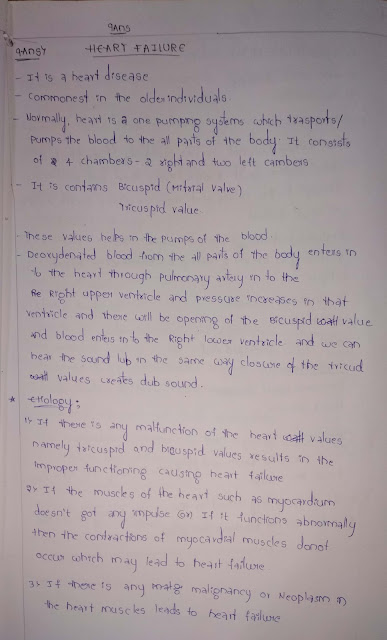 9ANS
9ANS7 HEART FAILURE
- It is a heart disease
- Commonest in the older individuals.
- Normally, heart is a one pumping systems which trasports/
pumps the blood to the all parts of the body. It consists
of 4 chambers - 2 right and two left cambers
- It is contains Bicuspid (Mitarial Valve)
Tricuspid value.
- These values helps in the pumps of the blood
- Deoxydenated blood from the all parts of the body enters in
to the heart through pulmonary artery in to the
Right upper ventricle and pressure increases in that
ventricle and there will be opening of the Bicuspid value
and blood enters in to the Right lower ventricle and we can
hear the sound lub in the same way closure of the tricud
values creates dub sound.
* etiology;
1> If there is any malfunction of the heart values
namely tricuspid and bicuspid values results in the
improper functioning causing heart failure
2> If the muscles of the heart such as myocardium
doesn't got any impulse (or) If it functions abnormally
then the contractions of myocardial muscles donot
occur which may lead to heart failure
3> If there is any malignancy or Neoplasm in
the heart muscles leads to heart failure